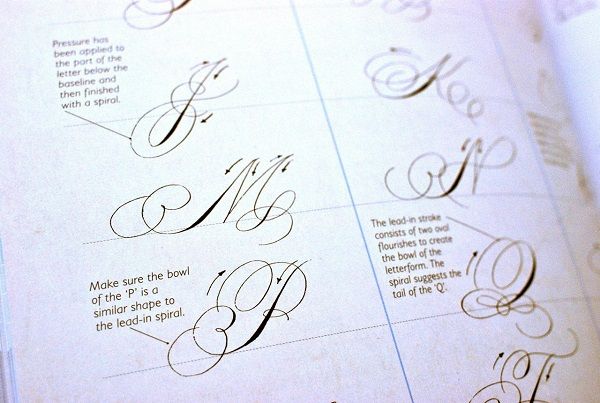 Pressure has
been applied to
the part of the
letter below the
baseline and
then finished
with a spiral.
J
K
M
N
Make sure the bowl
of the 'P' is a
similar shape to
the lead-in spiral.
P
The lead-in stroke
consists of two oval
flourishes to create
the bowl of the
letterform. The
spiral suggests the
tail of the 'Q'.
Q
T